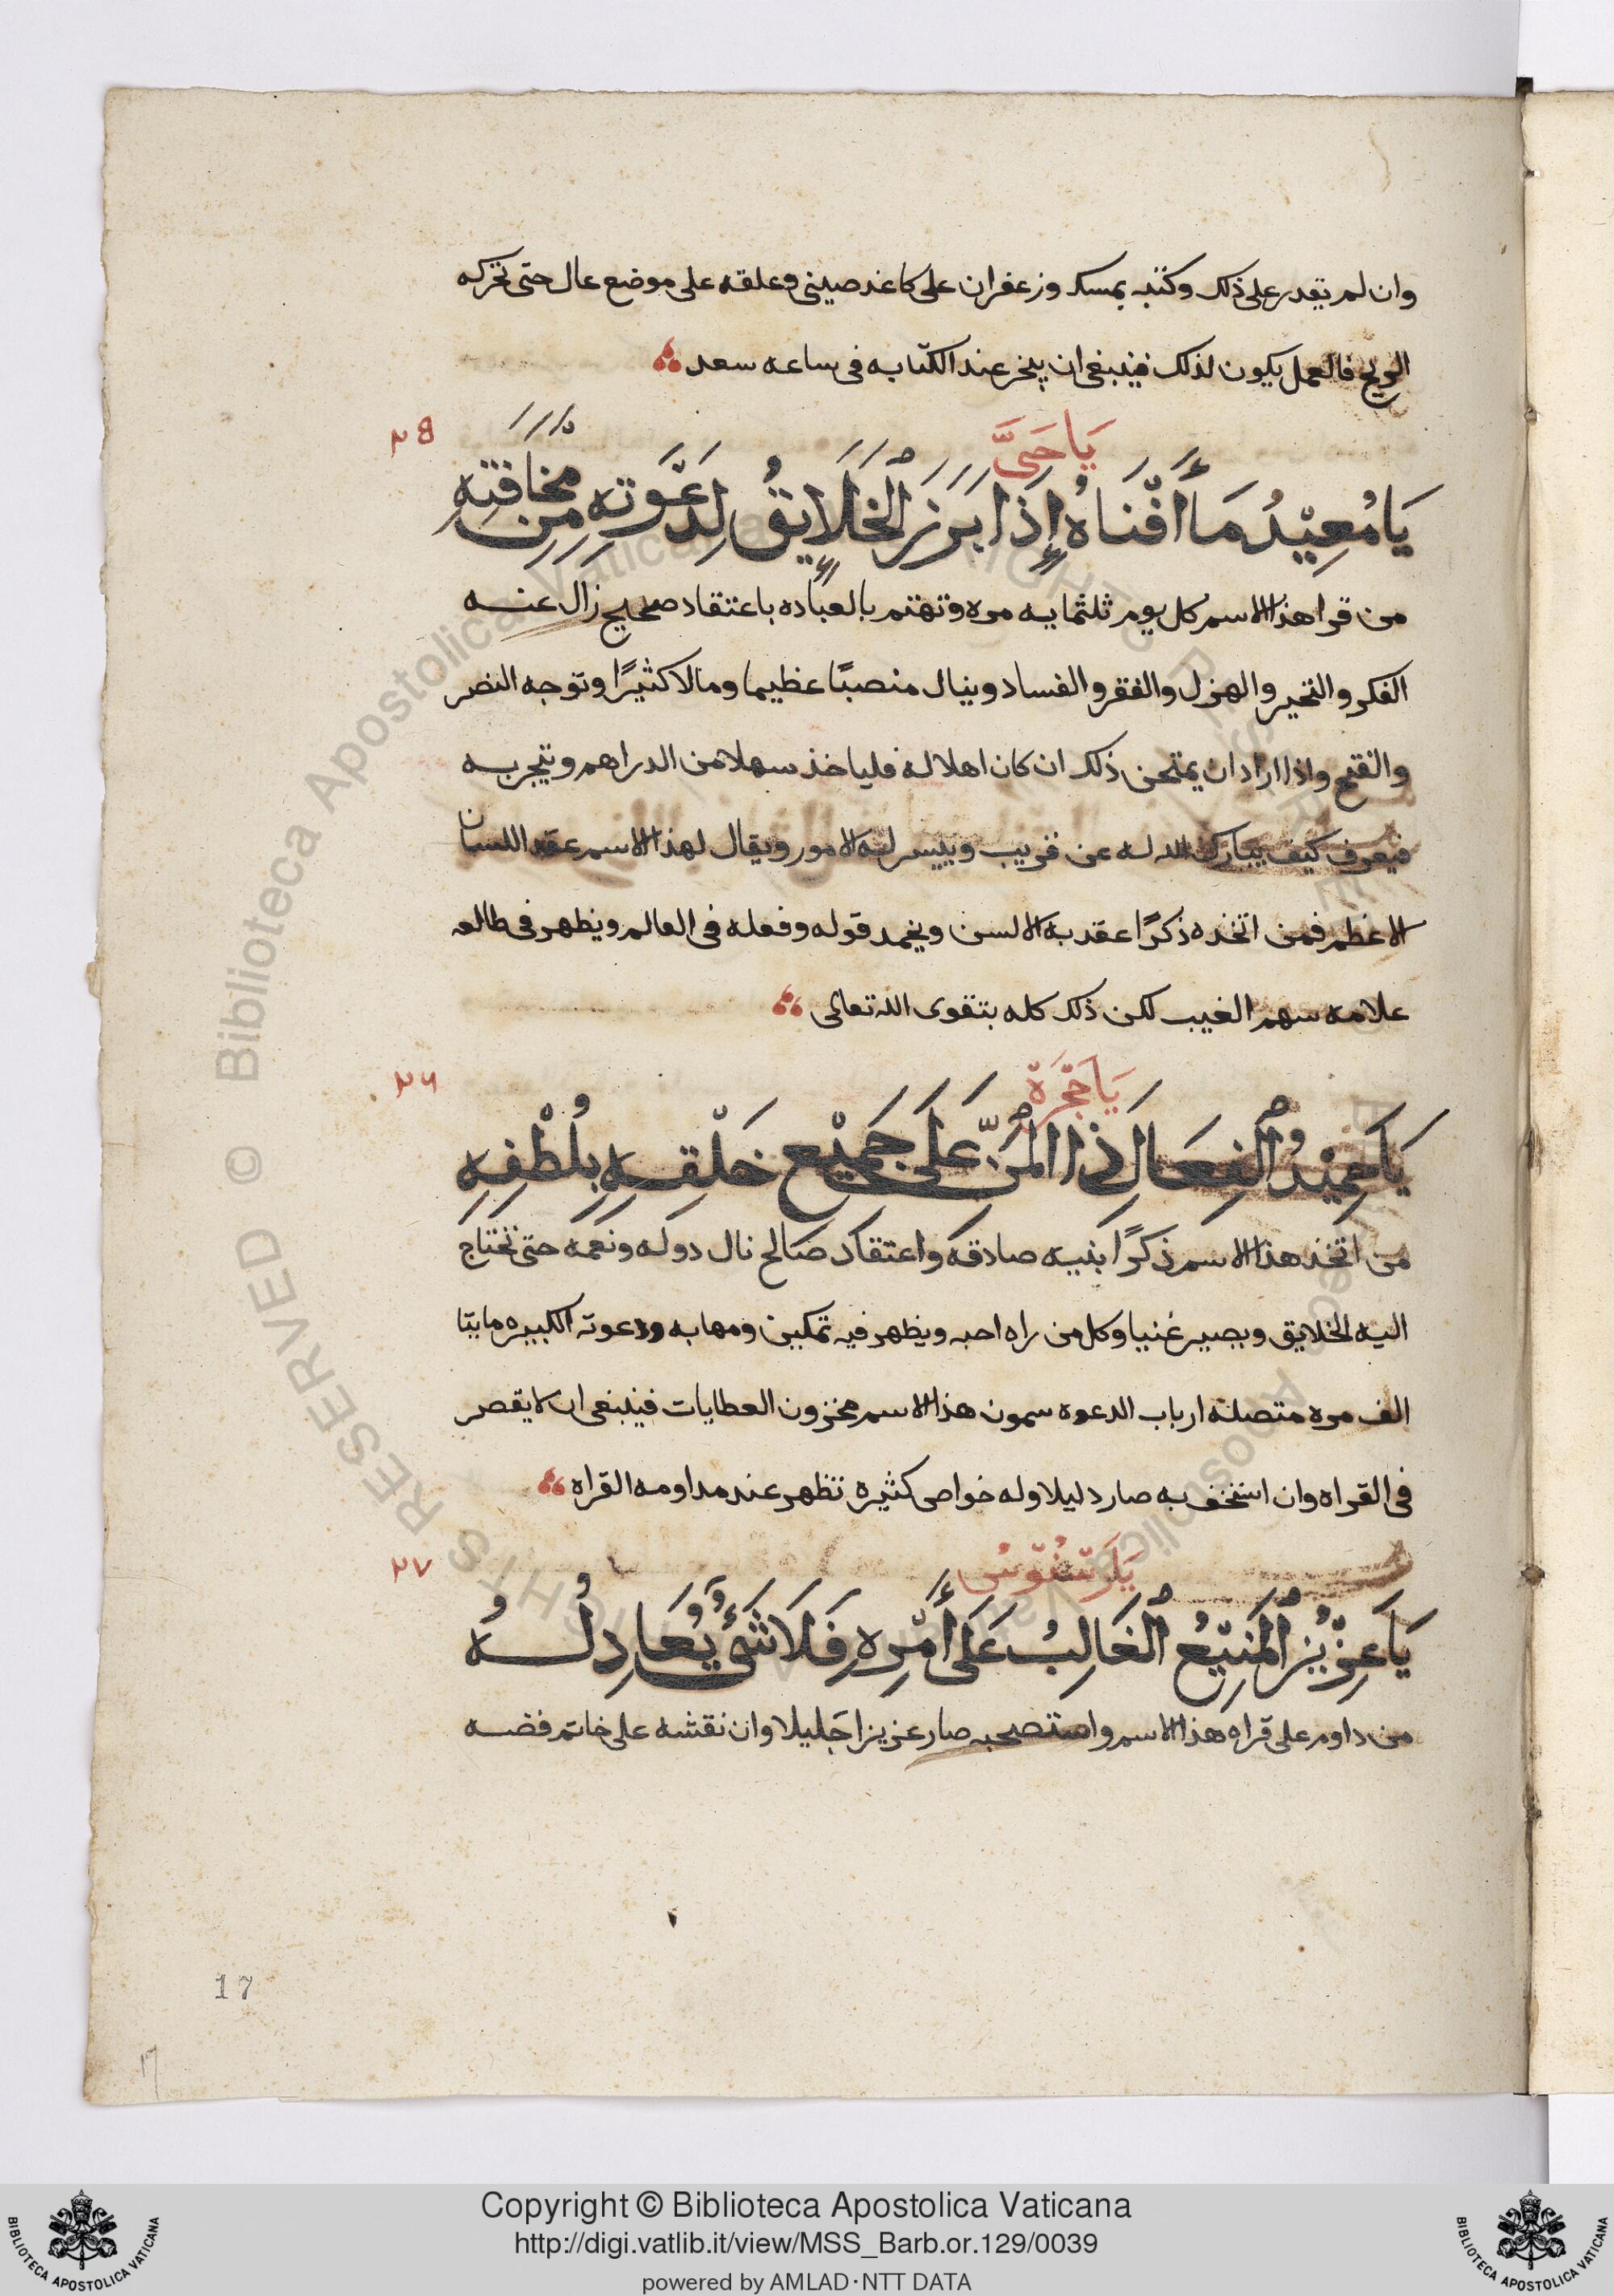 وان لم يقدر على ذلك وكتبه بمسك وزعفران على كاغد صينى وعلقه على موضع عال حتى تحركه
الريح فالعمل يكون لذلك فينبغى ان يبخر عند الكتابه فى ساعه سعد
٢٥
يَا حَىَّ
يَا مُعِيْدُ مَا أَفْنَاهُ إِذَا بَرَزَ ٱلْخَلَايِقُ لِدَعْوَتِهِ مِنْ مَخَافَتِهِ
من قرا هذا الاسم كل يوم ثلثمايه مره وتهتم بالعباده باعتقاد صحيح زال عنه
الفكر والتحير والهزل والفقر والفساد وينال منصبًا عظيما ومالا كثيرًا وتوجه النصر
والفتح واذا اراد ان يمتحن ذلك ان كان اهلا له فلياخذ سهلا من الدراهم ويتجر به
فيعرف كيف يبارك الله له عن قريب وييسر له الامور ويقال لهذا الاسم عقد اللسان
الاعظم فمن اتخذه ذكرًا عقد به الالسن ويحمد قوله وفعله فى العالم ويظهر فى طالعه
علامه سهم الغيب لكن ذلك كله بتقوى الله تعالى
٢٦
يَا حَمِيْدُ ٱلْفِعَالِ ذَا ٱلْمَنِّ عَلَى جَمِيْعِ خَلْقِهِ بِلُطْفِهِ
من اتخذ هذا الاسم ذكرًا بنيه صادقه واعتقاد صالح نال دوله ونعمه حتى تحتاج
اليه الخلايق ويصير غنيا وكل من راه احبه ويظهر فيه تمكين ومهابه ودعوته الكبيره مايتا
الف مره متصله ارباب الدعوه سمون هذا الاسم مخزون العطايات فينبغى ان لا يقصر
فى القراه وان استخف به صار دليلا وله خواص كثيره تظهر عند مداومه القراه
٢٧
يَا عَزِيْزُ ٱلْمَنِيْعُ ٱلْغَالِبُ عَلَى أَمْرِهِ فَلَا شَىْءَ يُعَادِلُهُ
من داوم على قراه هذا الاسم واستصحبه صار عزيزا جليلا وان نقشه على خاتم فضه
17
17
© Biblioteca Apostolica Vaticana
Copyright © Biblioteca Apostolica Vaticana
http://digi.vatlib.it/view/MSS_Barb.or.129/0039
powered by AMLAD·NTT DATA
BIBLIOTECA APOSTOLICA VATICANA
BIBLIOTECA APOSTOLICA VATICANA